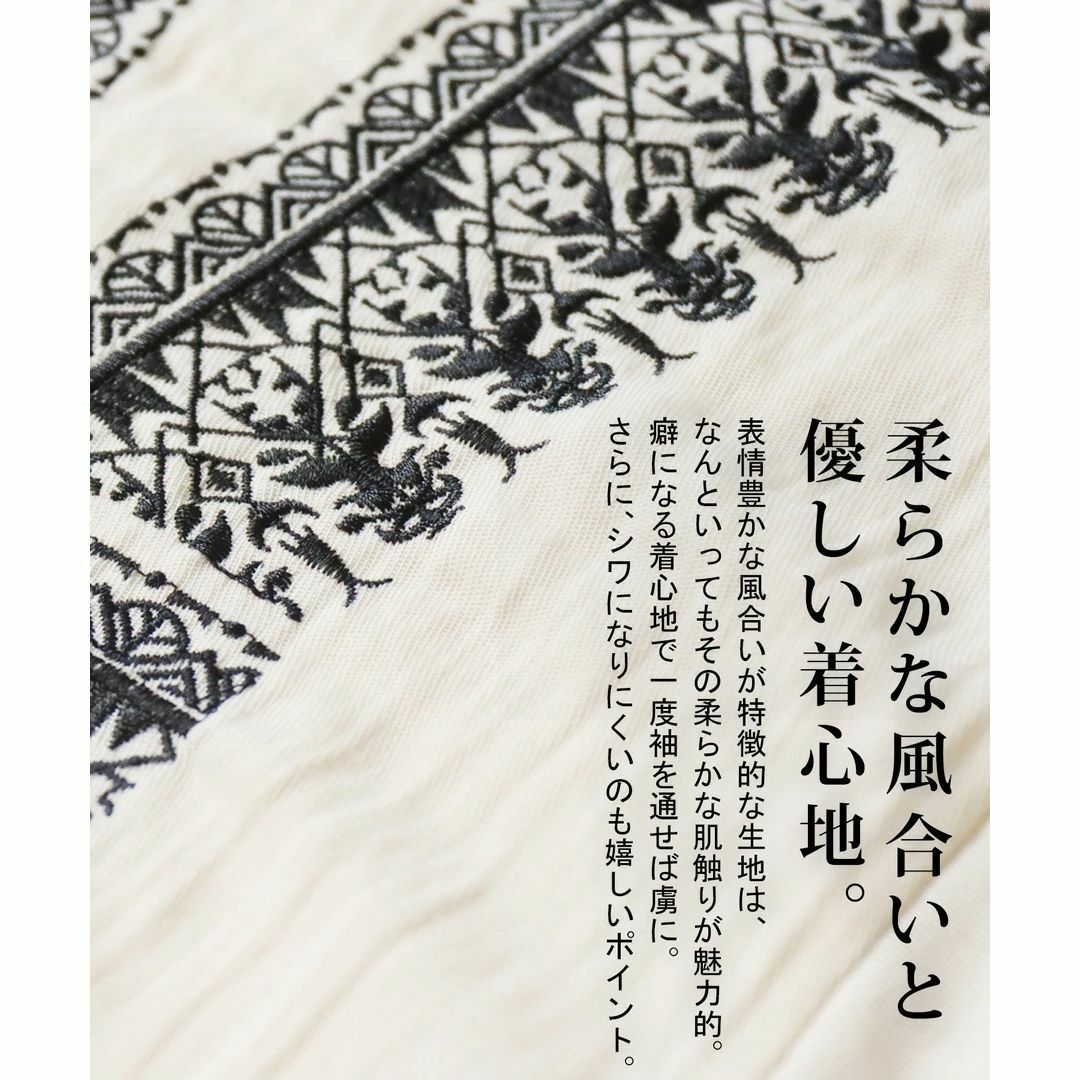 柔らかな風合いと
優しい着心地。
表情豊かな風合いが特徴的な生地は、
なんといってもその柔らかな肌触りが魅力的。
癖になる着心地で一度袖を通せば虜に。
さらに、シワになりにくいのも嬉しいポイント。